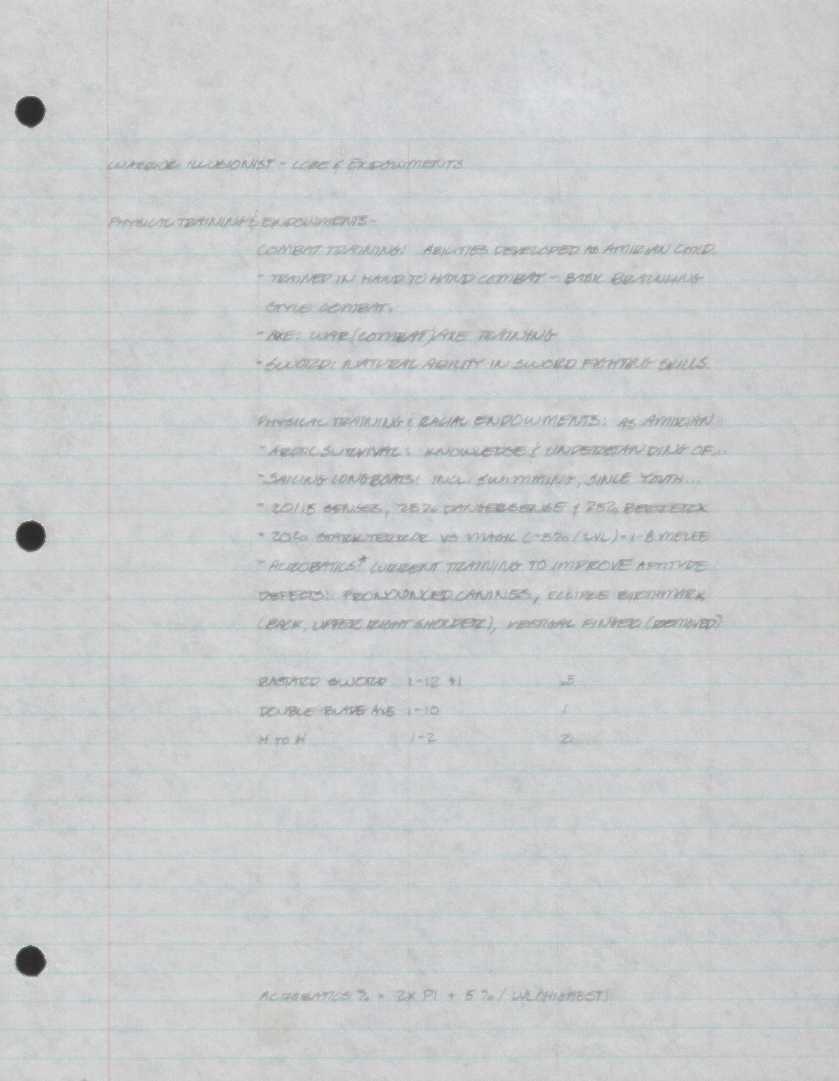 WARRIOR ILLUSIONIST - LORE & ENDOWMENTS
PHYSICAL TRAINING & ENDOWMENTS -
COMBAT TRAINING: ABILITIES DEVELOPED AS AMIRIAN CHILD.
- TRAINED IN HAND TO HAND COMBAT - BASIC BRAWLING
STYLE COMBAT.
- AXE: WAR (COMBAT) AXE TRAINING
- SWORD: NATURAL ABILITY IN SWORD FIGHTING SKILLS.
PHYSICAL TRAINING & RACIAL ENDOWMENTS: AS AMIRIAN
- ARCTIC SURVIVAL: KNOWLEDGE & UNDERSTANDING OF...
- SAILING LONGBOATS: INCL. SWIMMING, SINCE YOUTH...
- 20/15 SENSES, 25% DANGERSENSE & 25% BERSERK
- 20% VS MAGIC (-5%/LVL) = 1-8 MELEE
- ACROBATICS* CURRENT TRAINING TO IMPROVE APTITUDE
DEFECTS: PRONOUNCED CANINES, ECLIPSE BIRTHMARK
(BACK, UPPER RIGHT SHOLDER), VESTIGAL FINGERS (REMOVED)
BASTARD SWORD 1-12 +1
DOUBLE BLADE AXE 1-10 1
H TO H 1-2 2
ACROBATICS % = 2X PI + 5% / LVL (HIGHEST)